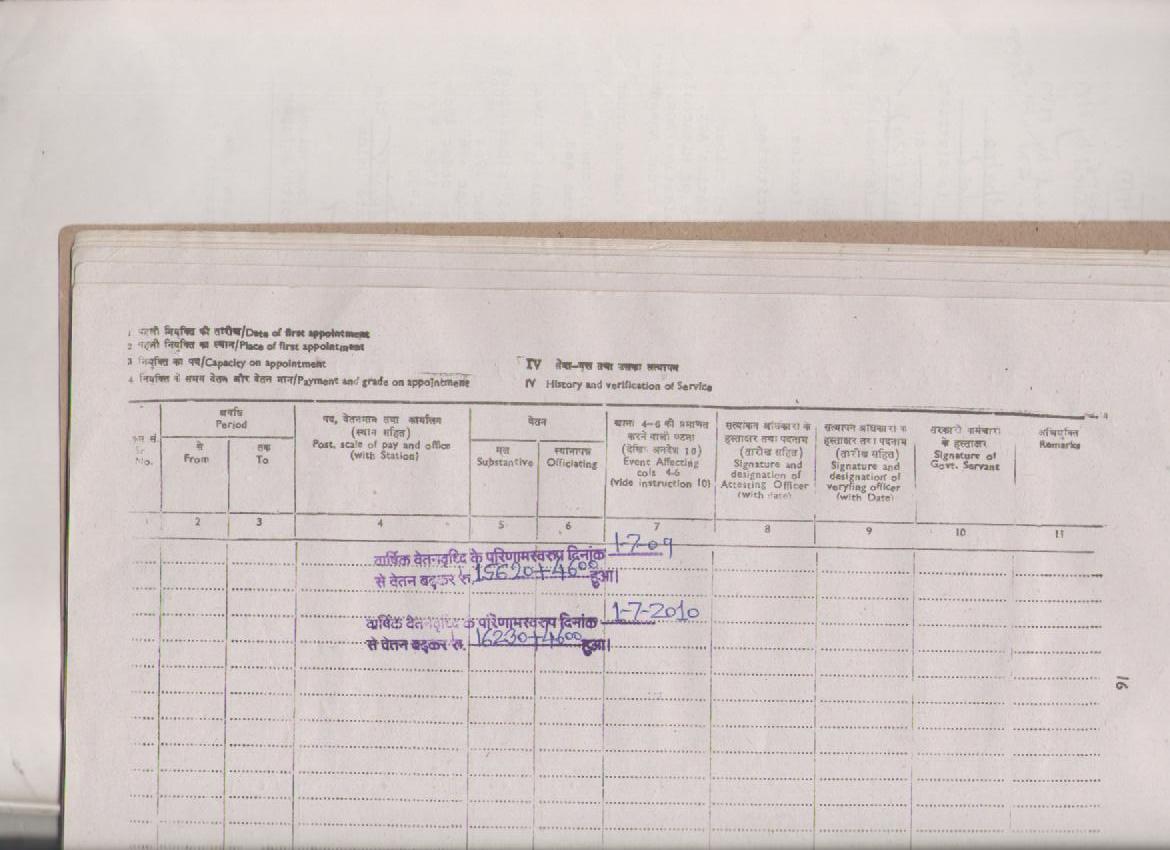 1 पहली नियुक्ति की तारीख/Date of first appointment
2 पहली नियुक्ति का स्थान/Place of first appointment
3 नियुक्ति का पद/Capacity on appointment
4 नियुक्ति के समय वेतन और वेतन मान/Payment and grade on appointment
IV सेवा-वृत्त तथा उसका सत्यापन
IV History and verification of Service
क्रम सं.
Sr.
No.
अवधि
Period
से
From
तक
To
पद, वेतनमान तथा कार्यालय
(स्थान सहित)
Post, scale of pay and office
(with Station)
वेतन
मूल
Substantive
स्थानापन्न
Officiating
खाना 4-6 को प्रभावित
करने वाली घटना
(देखिए अनुदेश 10)
Event Affecting
cols 4-6
(vide instruction 10)
सत्यापन अधिकारी के
हस्ताक्षर तथा पदनाम
(तारीख सहित)
Signature and
designation of
Attesting Officer
(with date)
सत्यापन अधिकारी के
हस्ताक्षर तथा पदनाम
(तारीख सहित)
Signature and
designation of
veryfing officer
(with Date)
सरकारी कर्मचारी
के हस्ताक्षर
Signature of
Govt. Servant
अभियुक्ति
Remarks
1 2 3 4 5 6 7 8 9 10 11
वार्षिक वेतनवृध्दि के परिणामस्वरुप दिनांक 1-7-09
से वेतन बढ़कर रु. 15620+4600 हुआ।
वार्षिक वेतनवृध्दि के परिणामस्वरुप दिनांक 1-7-2010
से वेतन बढ़कर रु. 16230+4600 हुआ।
16